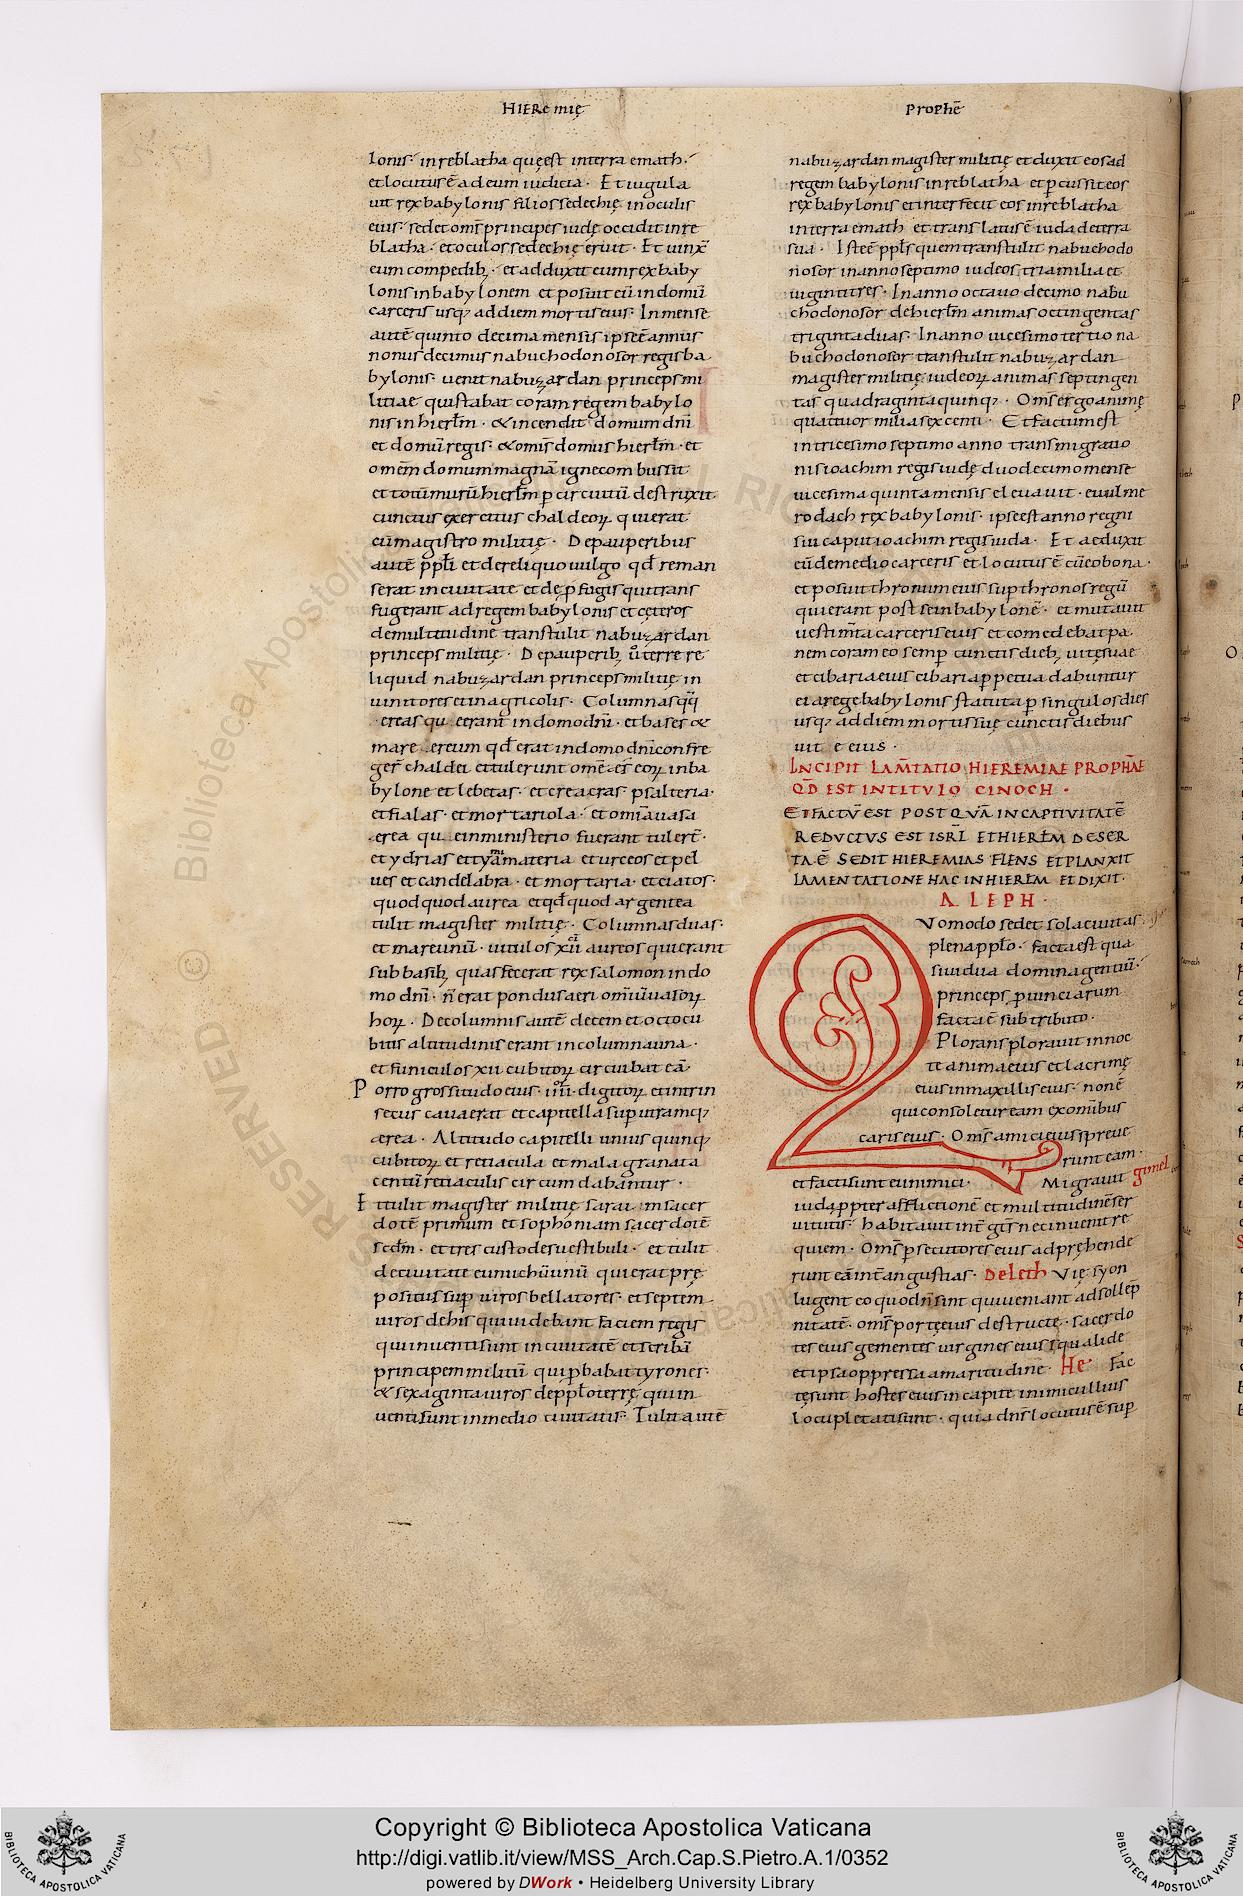 HIEREmię
Prophē
lonis· in reblatha quę est in terra emath·
et locutus ē ad eum iudicia· Et iugula
uit rex babylonis filios sedechię in oculis
eius· sed et om̄s principes iudę occidit in re
blatha· et oculos sedechię eruit· Et uinx̄
eum compedib; · et adduxit eum rex baby
lonis in babylonem et posuit eū in domū
carceris usq; ad diem mortis eius· In mense
autē quinto decima mensis ipse ē annus
nonus decimus nabuchodonosor regis ba
bylonis· uenit nabuzardan princeps mi
litiae qui stabat coram regem babylo
nis in hierłm· & incendit domum dn̄i
et domū regis· & omīs domus hierłm· et
omēm domum magnā igne combussit
et totū murū hierłm p circuitū destruxit·
cunctus exercitus chaldeoꝝ qui erat
cū magistro militię· De pauperibus
autē ppłi et de reliquo uulgo qđ reman
serat in ciuitate et de pfugis qui trans
fugerant ad regem babylonis et cęteros
de multitudine transtulit nabuzardan
princeps militię· De pauperib; ū terre re
liquid nabuzardan princeps militię in
uinitores et in agricolis· Columnas qq̄
ereas quę erant in domo dn̄i· et bases &
mare ereum qđ erat in domo dn̄i confre
ger̄ chaldei et tulerunt omē ęs eoꝝ in ba
bylone et lebetas· et creacras· psalteria·
et fialas· et mortariola· et omīa uasa
ęrea quę in ministerio fuerant tulert̄·
et ydrias et tyāmateria et urceos et pel
ues et candelabra· et mortaria· et ciatos·
quodquod aurea et qđquod argentea
tulit magister militię· Columnas duas·
et mare unū· uitulos xii aureos qui erant
sub basib; quas fecerat rex salomon in do
mo dn̄i· n̄ erat pondus aeri omīū uasoꝝ
hoꝝ· De columnis autē decem et octo cu
bitis altitudinis erant in columna una·
et funiculos xii cubitoꝝ circuibat eā·
Porro grossitudo eius· iiii· digitoꝝ et intrin
secus caua erat et capitella sup utramq;
ęrea· Altitudo capitelli unius quinq;
cubitoꝝ et retiacula et mala granata
centū retiaculis circumdabantur·
Et tulit magister militię sarai in sacer
dotē primum et sophoniam sacerdotē
scđm· et tres custodes uestibuli· et tulit
de ciuitate eunuchū unū qui erat prę
positus sup uiros bellatores· et septem
uiros de his qui uidebant faciem regis
qui inuenti sunt in ciuitatē et scribā
principem militū qui pbabat tyrones·
& sexaginta uiros de ppło terrę qui in
uenti sunt in medio ciuitatis· Tulit autē
nabuzardan magister militię et duxit eos ad
regem babylonis in reblatha et pcussit eos
rex babylonis et interfecit eos in reblatha
in terra emath et translatus ē iuda de terra
sua· Iste ē ppłs quem transtulit nabuchodo
nosor in anno septimo iudeos tria milia et
uiginti tres· In anno octauo decimo nabu
chodonosor de hierłm animas octingentas
triginta duas· In anno uicesimo tertio na
buchodonosor transtulit nabuzardan
magister militię iudeoꝝ animas septingen
tas quadraginta quinq;· Om̄s ergo animę
quattuor milia sexcenti· Et factum est
in tricesimo septimo anno transmigratio
nis ioachim regis iudę duodecimo mense
uicesima quinta mensis eleuauit· euilme
rodach rex babylonis· ipse est anno regni
sui caput ioachim regis iuda· Et aeduxit
eū de medio carceris et locutus ē cū eo bona·
et posuit thronum eius sup thronos regū
qui erant post se in babylonē· et mutauit
uestim̄ta carceris eius et comedebat pa
nem coram eo semp cunctis dieb; uitę suae
et cibaria eius cibaria ppetua dabuntur
ei a rege babylonis statuta p singulos dies
usq; ad diem mortis suę cunctis diebus
uitę eius·
INCIPIT LAM̄TATIO HIEREMIAE PROPHĀE
QĐ EST IN TITVLO CINOCH·
ET FACTV̄ EST POSTQVĀ IN CAPTIVITATĒ
REDVCTVS EST ISRL̄ ET HIERŁM DESER
TA Ē SEDIT HIEREMIAS FLENS ET PLANXIT
LAMENTATIONE HAC IN HIERŁM ET DIXIT·
ALEPH·
QVomodo sedet sola ciuitas·
plena ppło· facta est qua
si uidua domina gentiū·
princeps puinciarum
facta ē sub tributo·
Plorans plorauit in noc
te anima eius et lacrimę
eius in maxillis eius· non ē
qui consoletur eam ex omībus
caris eius· Om̄s amici eius spreue
runt eam·
et facti sunt ei inimici· Migrauit gimel
iuda ppter afflictionē et multitudinē ser
uitutis· habitauit int̄ gt̄s nec inuenit re
quiem· Om̄s psecutores eius adpręhende
runt eā int̄ angustias· Deleth Vię syon
lugent eo quod n̄ sint qui ueniant ad sollēp
nitatē· om̄s portę eius destructę· sacerdo
tes eius gementes uirgines eius squalide
et ipsa oppressa amaritudine· He· Fac
tę sunt hostes eius in capite inimici illius
locupletati sunt· quia dn̄s locutus ē sup
Copyright © Biblioteca Apostolica Vaticana
http://digi.vatlib.it/view/MSS_Arch.Cap.S.Pietro.A.1/0352
powered by DWork • Heidelberg University Library